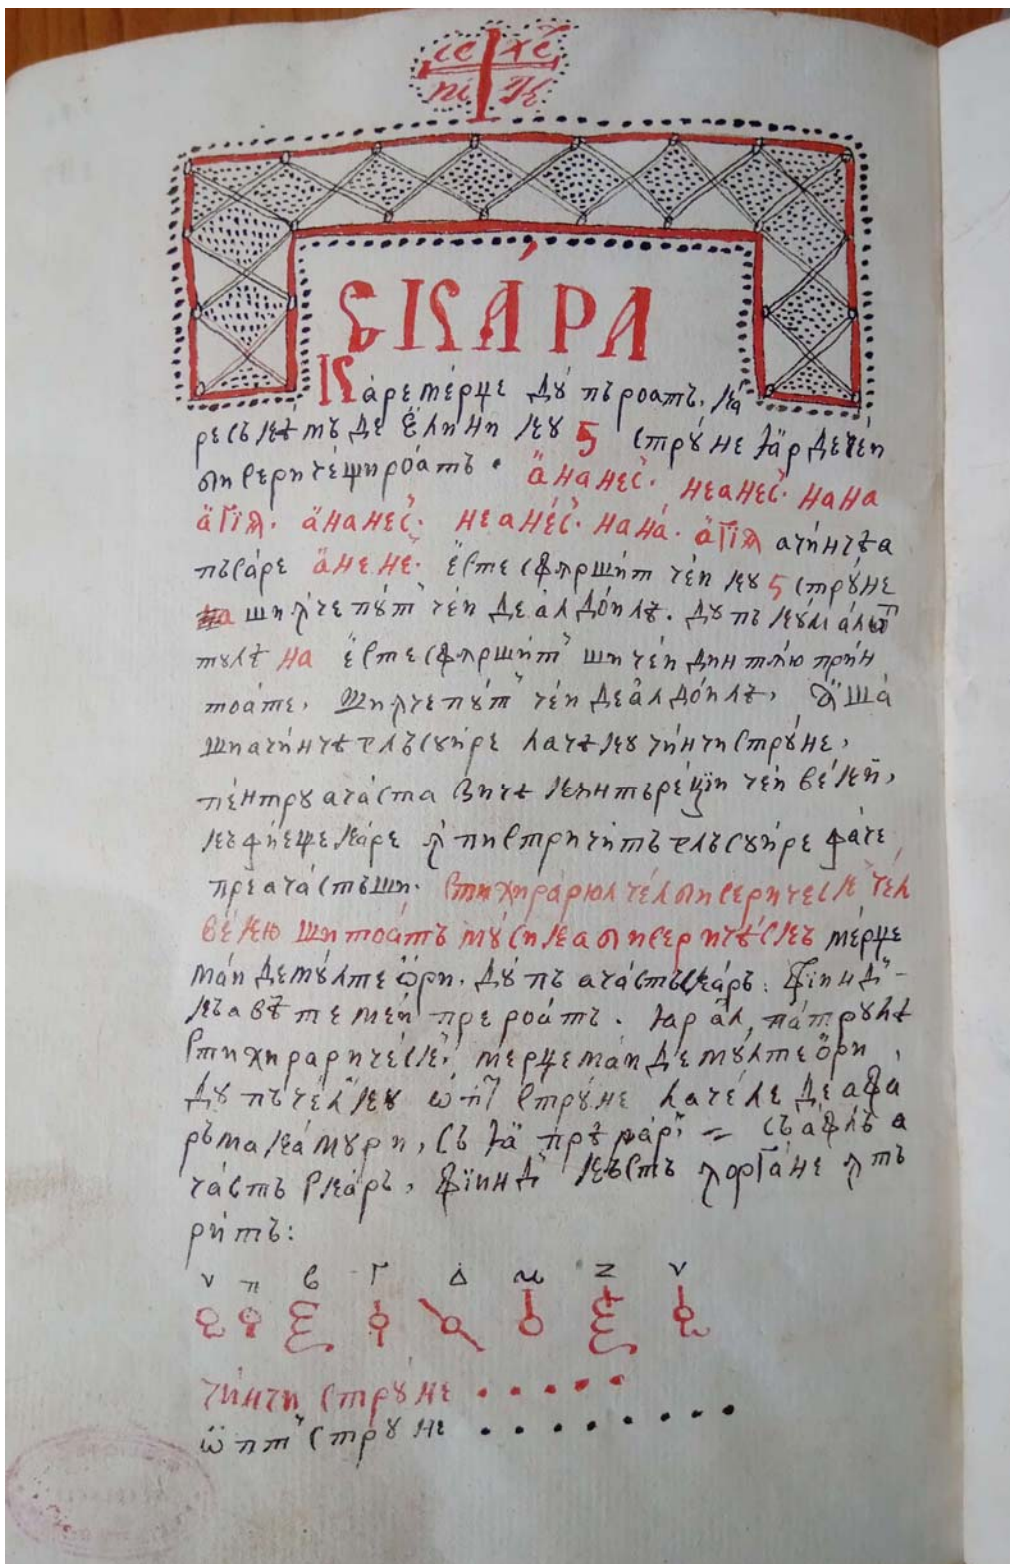 іс хс
ні ка
СКА́РА
Каре мерџе дꙋпъ роатъ, ка
ресъ кѣмъ де ёлини кꙋ 5 стрꙋне ꙗ̈р де чѐи
бисеричѐщи роатъ. а҆нанес. неанес. нана
а҆гїа. а҆нанес. неанѐс. нана̀. а҆гїа ачинчѣ а
пъсаре а҆нене. є҆сте сфършит чѐи кꙋ 5 стрꙋне
на ши ꙟчепꙋт чѐи де ал до́илѣ. дꙋпъ кꙋм ал
тꙋлѣ на є҆сте сфършит ши чѐи динтꙟю прин
тоате, ши ꙟчепꙋт чѐи де ал до́илѣ, аша
ши ачинчѣ ел ъ сꙋире лачѣ кꙋ чинчи стрꙋне,
пентрꙋ ачаста зичѣ кꙟнтърецїи чѐи векй,
къ фїеще каре ꙟ писмричитъ ел ъ сꙋире фаче
пре ачастъ ши. стихирарюл чел бисерическ чел
векю ши тоатъ мꙋсикеа бисеричѣскъ мерџе
май де мꙋлте ѡри. дꙋпъ ачастъ скаръ. фїинд
къ авѣ темей пре роатъ. ꙗр ал патрꙋлѣ
стихирарическ, мерџе май де мꙋлте ѡри,
дꙋпъ чел кꙋ ѡпт стрꙋне лачеле де афа
ръ макамꙋри, съ ꙗ̈ прѣ рар = съ афлъ а
частъ скаръ, фїинд късть ꙟ органе ꙟтъ
ритъ:
ν π в Γ Δ и z ν
чинчи стрꙋне . . . . .
ѡпт стрꙋне . . . . . . . .